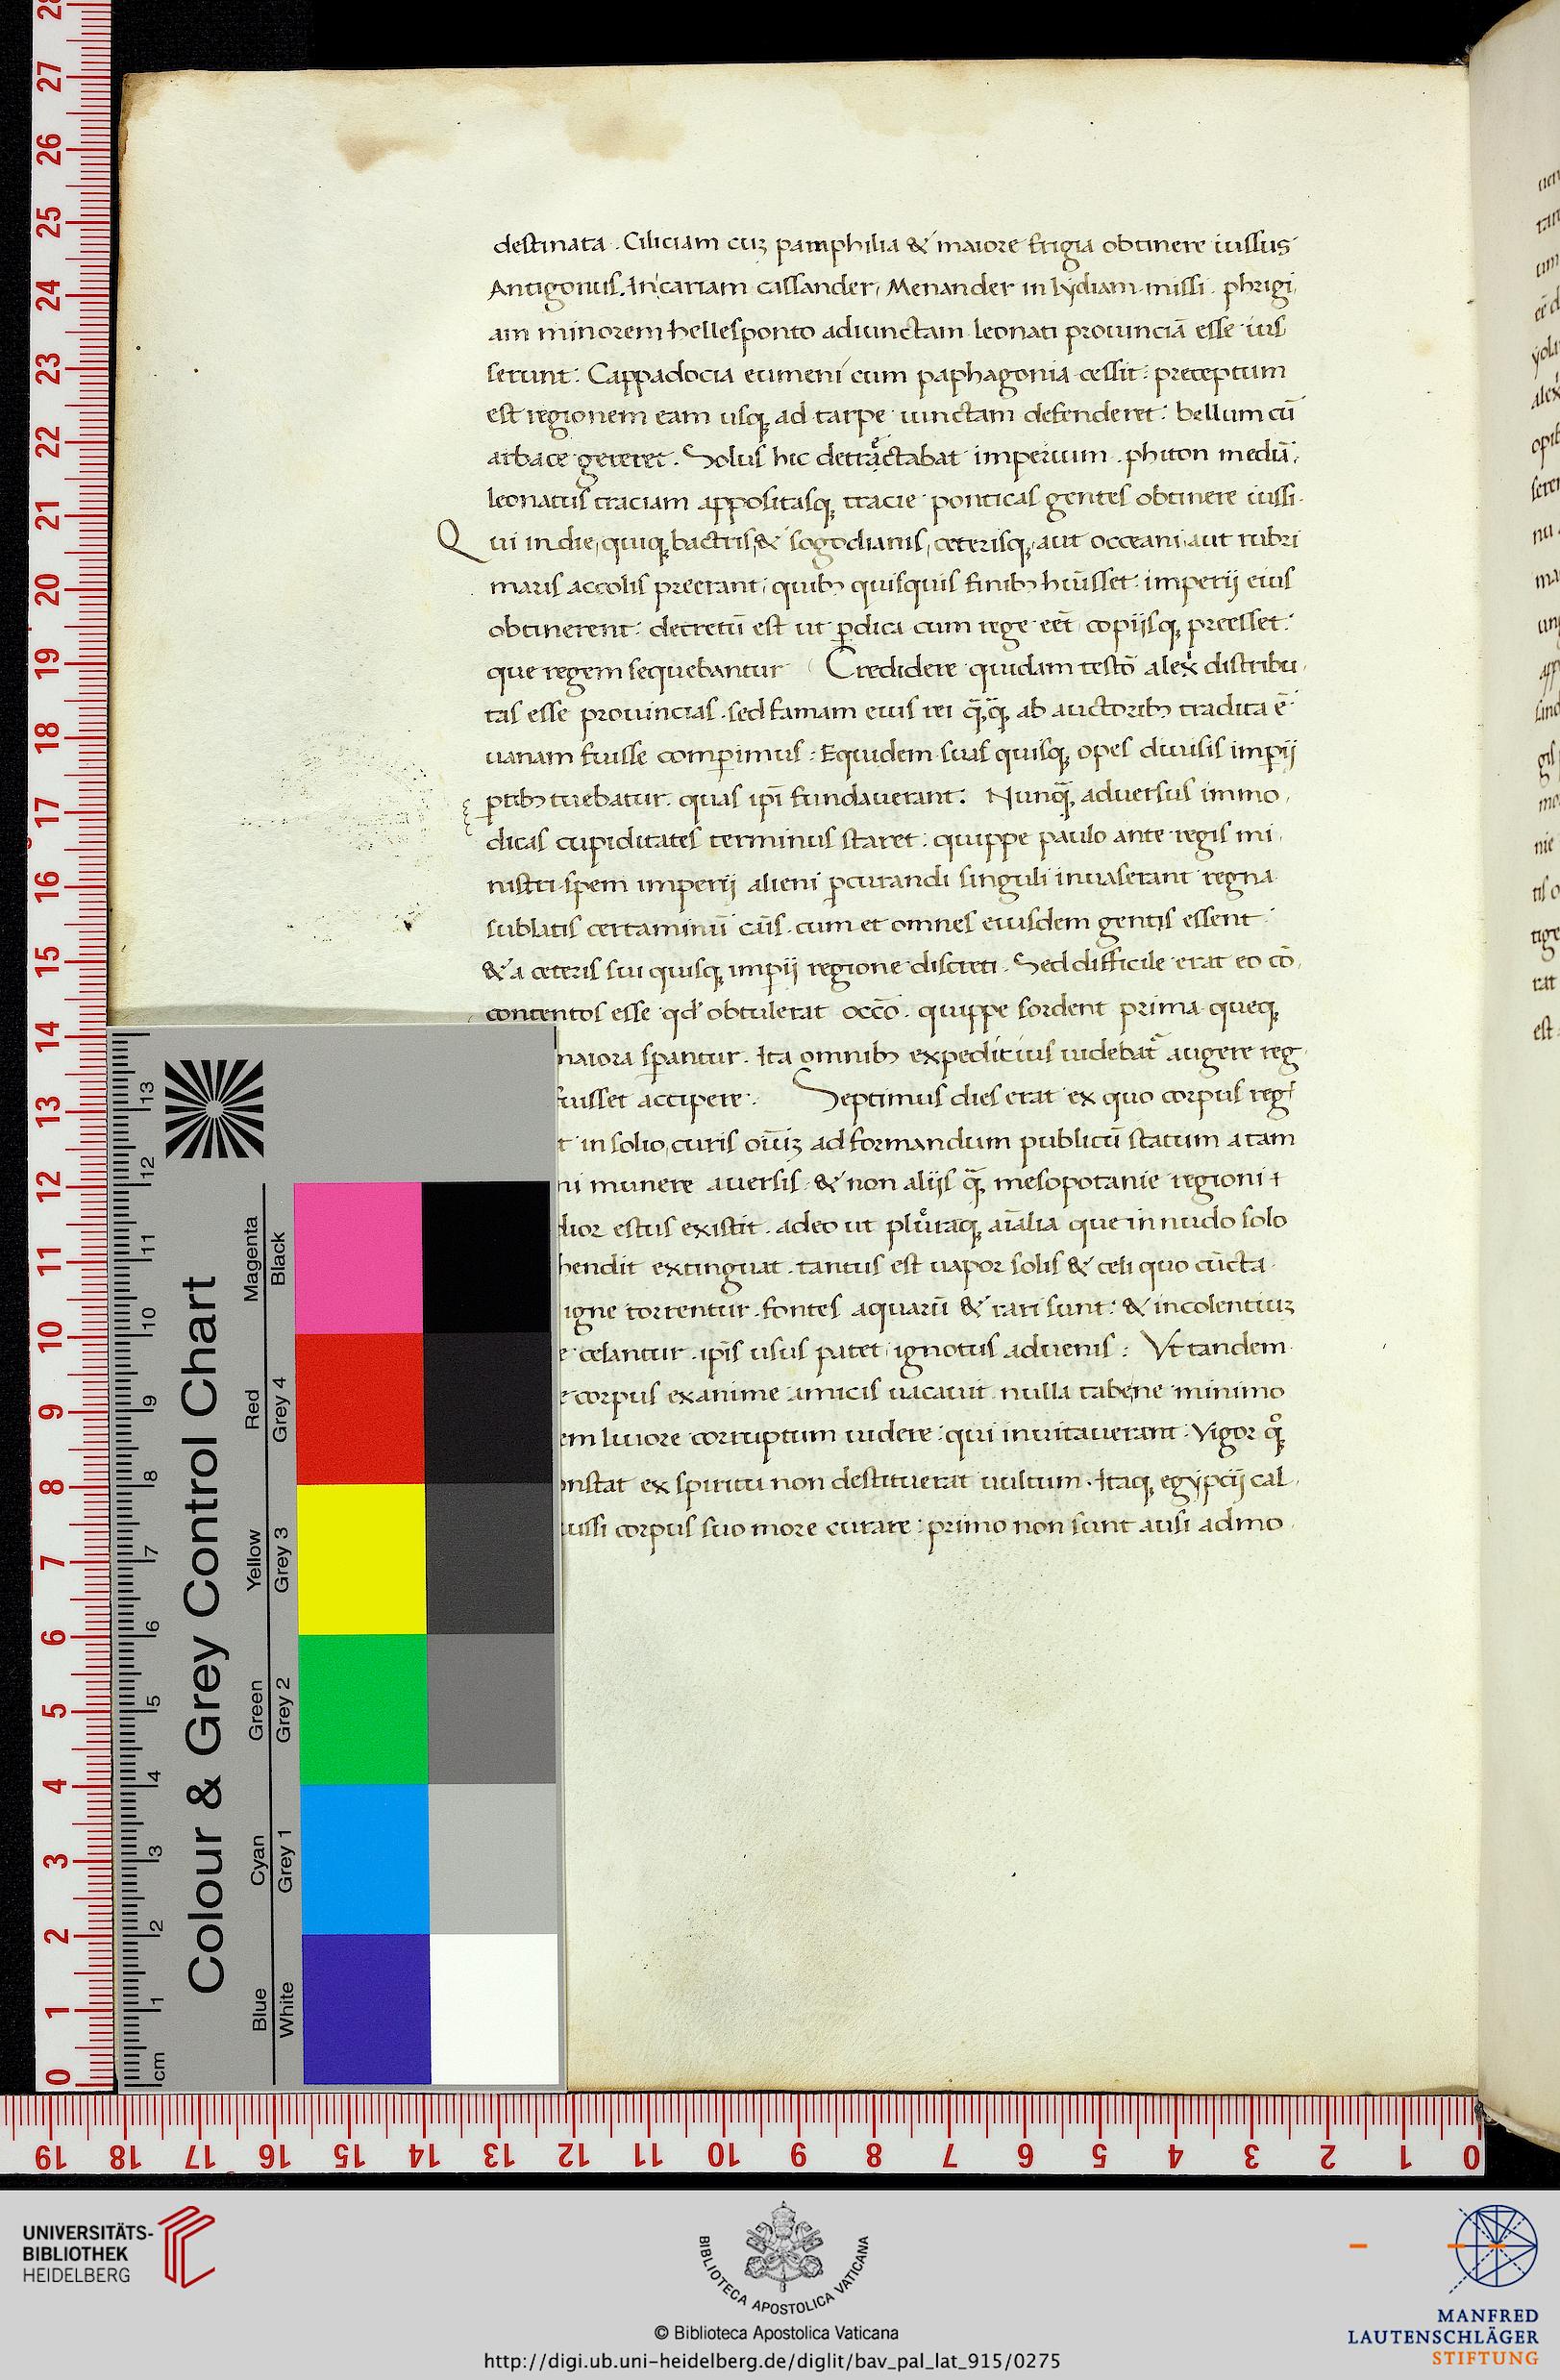 destinata . Ciliciam cuz pamphilia & maiore frigia obtinere iussus
Antigonus. In cariam cassander, Menander in lydiam missi . phrigi
am minorem hellesponto adiunctam leonati prouinciā esse ius
serunt : Cappadocia eumeni cum paphagonia cessit : preceptum
est regionem eam usq; ad tarpe iunctam defenderet : bellum cū
arbace gereret . Solus hic detractabat imperium . phiton mediā,
leonatus traciam appositasq; tracie ponticas gentes obtinere iussi .
Qui indie, quiq; bactris, & sogodianis, ceterisq; aut occeani aut rubri
maris accolis preerant, quib; quisquis finib; hūisset imperij eius
obtinerent : decretū est ut ꝑdica cum rege eēt copijsq; preesset :
que regem sequebantur Credidere quidam testō alex̄ distribu
tas esse prouincias . sed famam eius rei q̄q; ab auctorib; tradita ē
uanam fuisse comꝑimus : Equidem suas quisq; opes diuisis impij
ptib; tuebatur . quas ipi fundauerant : Nunq̄ aduersus immo
dicas cupiditates terminus staret : quippe paulo ante regis mi
nistri spem imperij alieni ꝓcurandi singuli inuaserant regna
sublatis certaminū cūis . cum et omnes eiusdem gentis essent
& a ceteris sui quisq; impij regione discreti . Sed difficile erat eo cō
contentos esse qd obtulerat occō . quippe sordent prima queq;
maiora sꝑantur . Ita omnib; expeditius uidebat̄ augere reg
fuisset accipere : Septimus dies erat ex quo corpus reg
t in solio, curis oīuz ad formandum publicū statum a tam
ni munere auersis & non alijs q̄ mesopotanie regioni
dior estus existit . adeo ut pluraq; aīalia que in nudo solo
hendit extinguat . tantus est uapor solis & celi quo cūcta
igne torrentur . fontes aquarū & rari sunt : & incolentiuz
e celantur . ipīs usus patet, ignotus aduenis : Vt tandem
e corpus exanime amicis uacauit nulla tabe, ne minimo
em liuore corruptum uidere : qui inuitauerant . Vigor q̊q;
onstat ex spiritu non destituerat uultum . Itaq; egypcij cal
iussi corpus suo more curare : primo non sunt ausi admo
Colour & Grey Control Chart
Magenta Black
Red Grey 4
Yellow Grey 3
Green Grey 2
Cyan Grey 1
Blue White
cm
UNIVERSITÄTS-
BIBLIOTHEK
HEIDELBERG
BIBLIOTECA APOSTOLICA VATICANA
© Biblioteca Apostolica Vaticana
http://digi.ub.uni-heidelberg.de/diglit/bav_pal_lat_915/0275
MANFRED
LAUTENSCHLÄGER
STIFTUNG